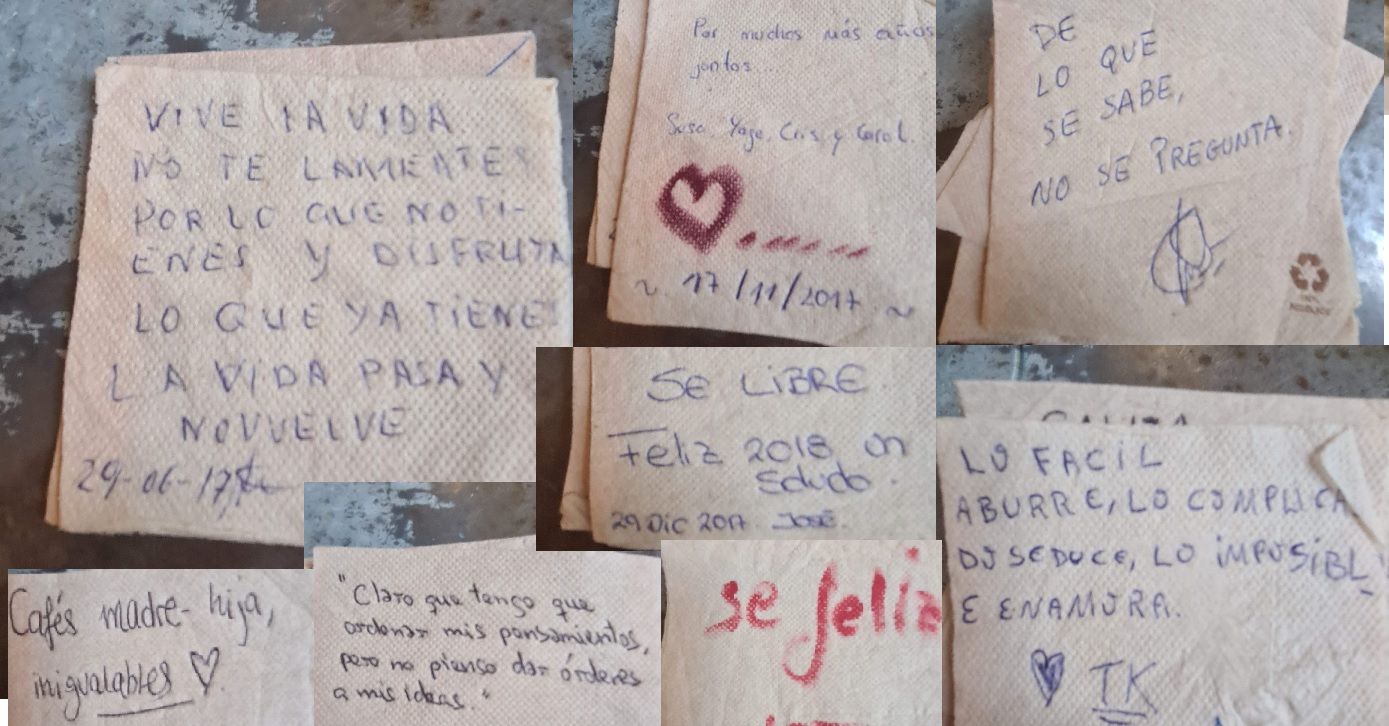 VIVE LA VIDA
NO TE LAMENTES
POR LO QUE NO TI-
ENES Y DISFRUTA
LO QUE YA TIENES
LA VIDA PASA Y
NO VUELVE
29-06-17
Por muchos más años
juntos...
Susa, Yago, Cris, y Carol.
~ 17/11/2017 ~
DE
LO QUE
SE SABE,
NO SE PREGUNTA.
SE LIBRE.
Feliz 2018 un
Saludo.
29 Dic 2017 JOSÉ.
LO FACIL
ABURRE, LO COMPLICA
DO SEDUCE, LO IMPOSIBL
E ENAMORA.
TK
Cafés madre-hija,
inigualables
"Claro que tengo que
ordenar mis pensamientos,
pero no pienso dar órdenes
a mis ideas."
se feliz